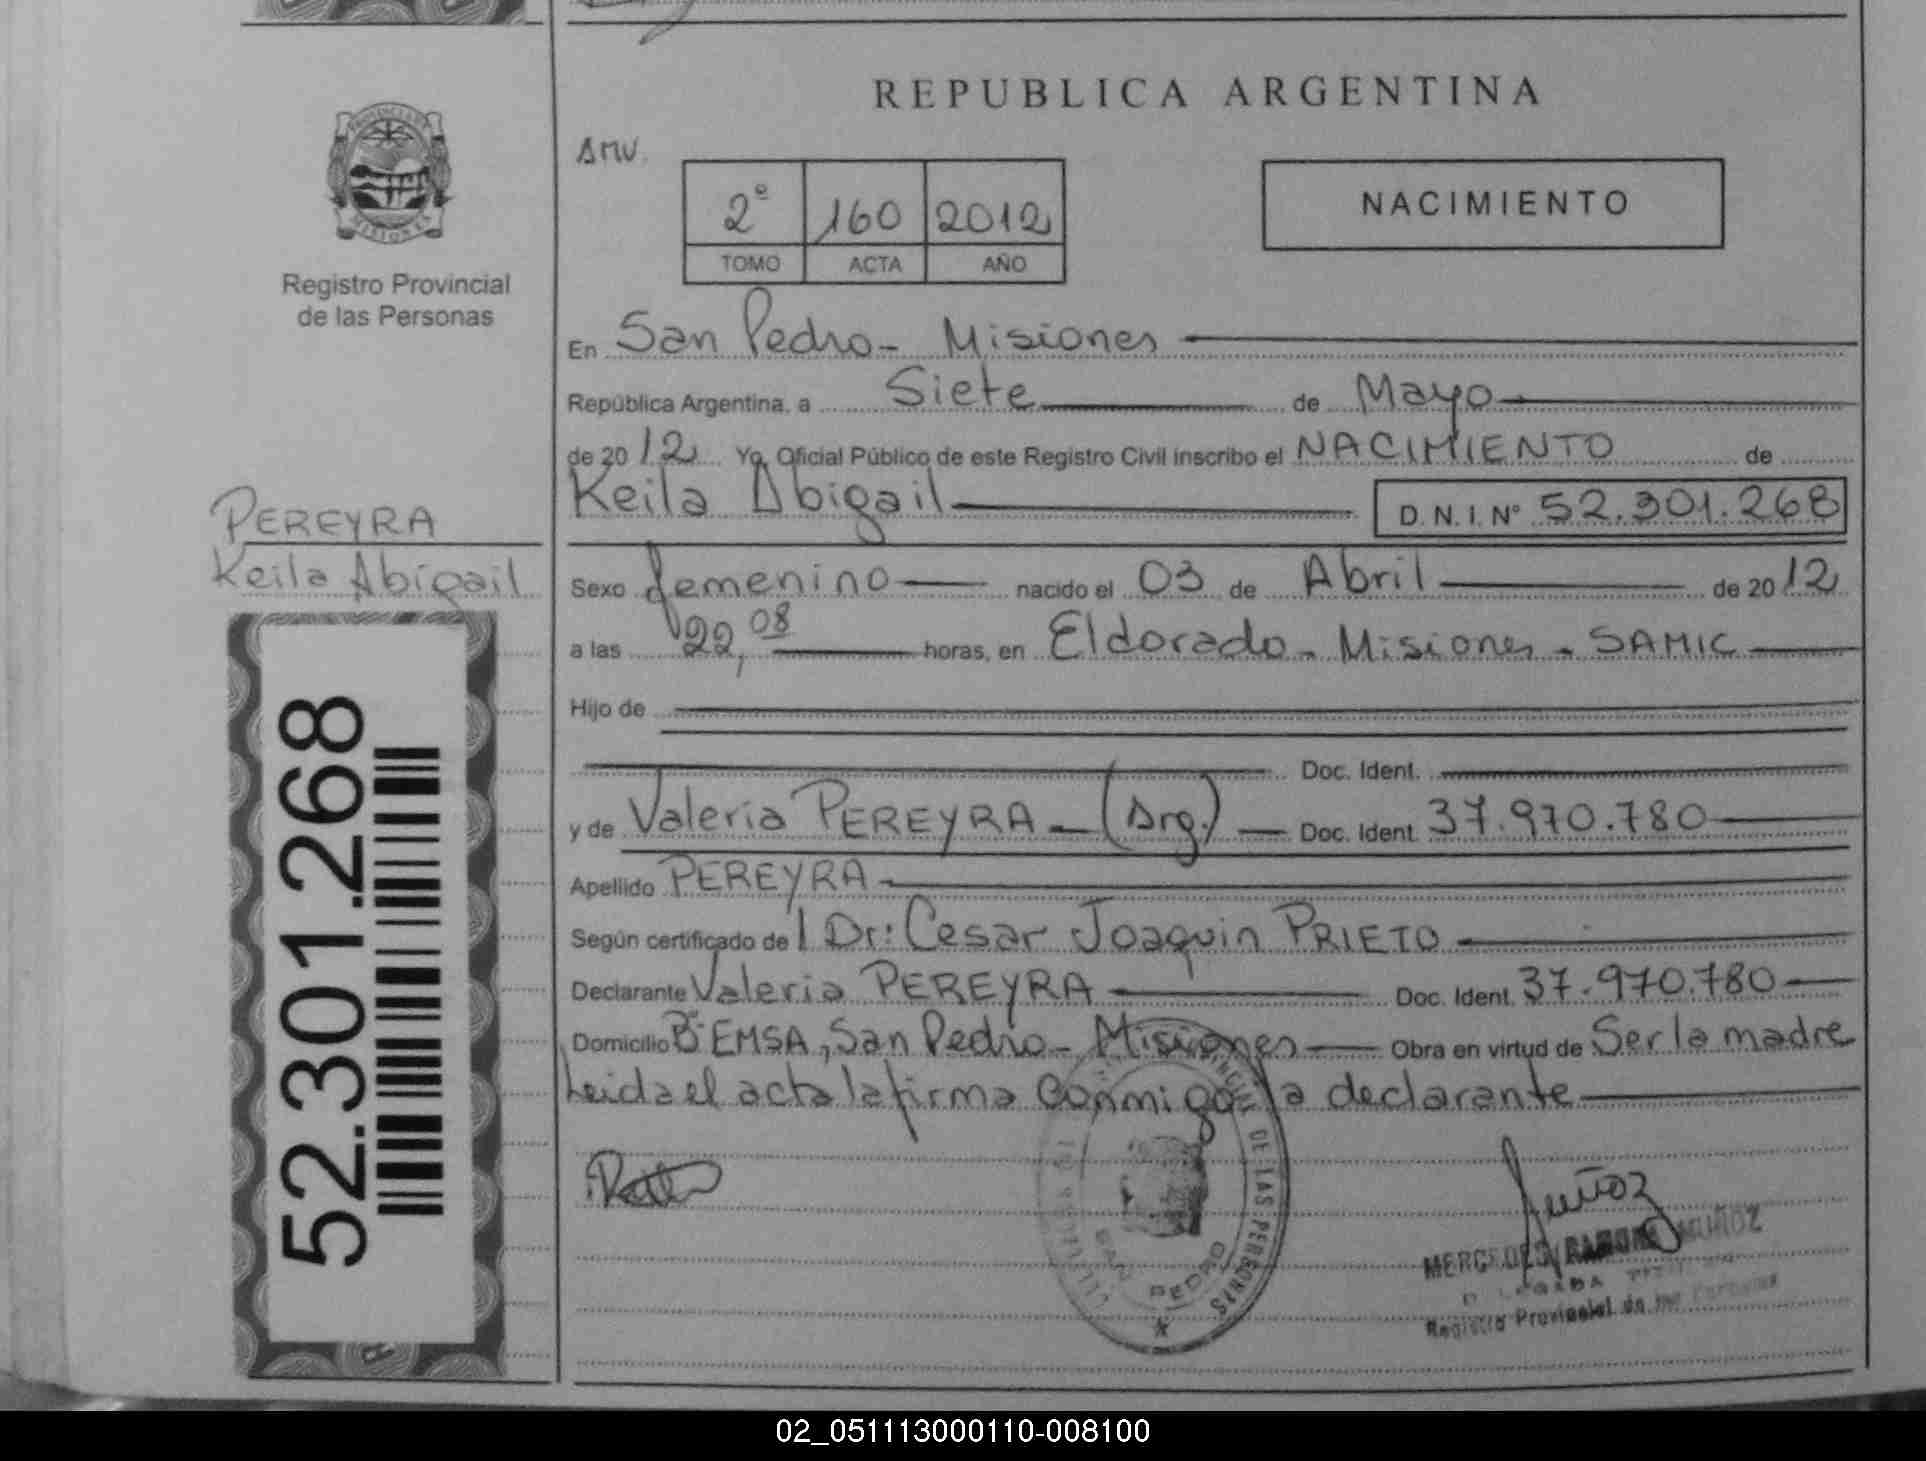 REPUBLICA ARGENTINA
PROVINCIA DE
MISIONES
Registro Provincial
de las Personas
AMV.
2º 160 2012
TOMO ACTA AÑO
NACIMIENTO
En San Pedro - Misiones
República Argentina, a Siete de Mayo
de 2012 Yo, Oficial Público de este Registro Civil inscribo el NACIMIENTO de
Keila Abigail D. N. I. Nº 52.301.268
PEREYRA
Keila Abigail
Sexo femenino nacido el 03 de Abril de 2012
a las 22,08 horas, en Eldorado - Misiones - SAMIC
Hijo de
Doc. Ident.
y de Valeria PEREYRA - (Arg.) - Doc. Ident. 37.970.780
Apellido PEREYRA -
Según certificado del Dr: Cesar Joaquin PRIETO
Declarante Valeria PEREYRA Doc. Ident. 37.970.780
Domicilio Bº EMSA, San Pedro - Misiones Obra en virtud de Ser la madre
Leida el acta la firma conmigo la declarante
52.301.268
DE LAS PERSONAS
SAN PEDRO
Muñoz
MERCEDES RAMONA MUÑOZ
Registro Provincial de las Personas
02_051113000110-008100